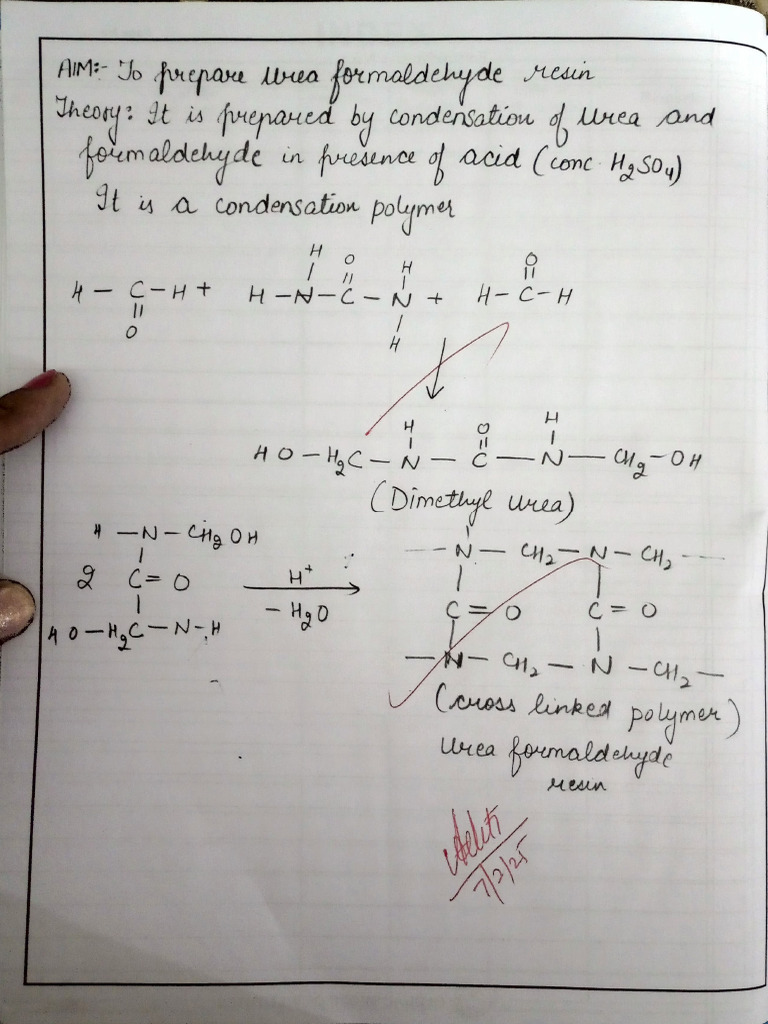 AIM:- To prepare urea formaldehyde resin
Theory: It is prepared by condensation of urea and
formaldehyde in presence of acid (conc. H2SO4)
It is a condensation polymer
H O H O
H – C – H + H – N – C – N + H – C – H
O H
H O H
HO – H2C – N – C – N – CH2 – OH
(Dimethyl urea)
H – N – CH2OH
2 C = O
HO – H2C – N – H
H+
– H2O
– N – CH2 – N – CH2 –
C = O C = O
– N – CH2 – N – CH2 –
(cross linked polymer)
Urea formaldehyde
resin
7/2/25